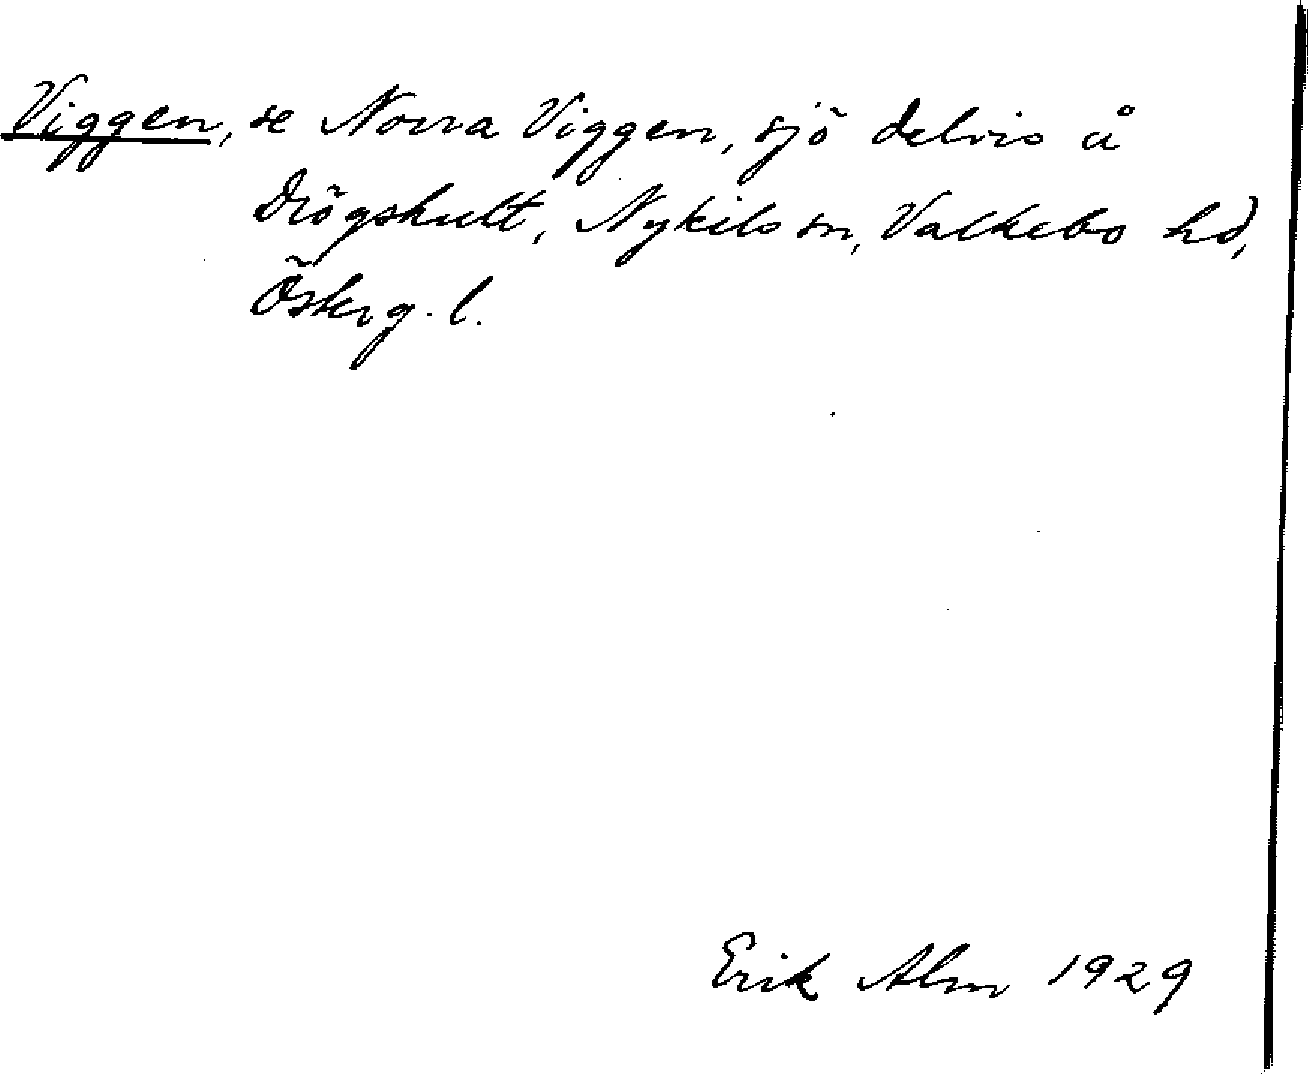 Viggen, se Norra Viggen, sjö delvis å
Drögshult, Nykils sn, Valkebo hd,
Österg. l.
Erik Alm 1929